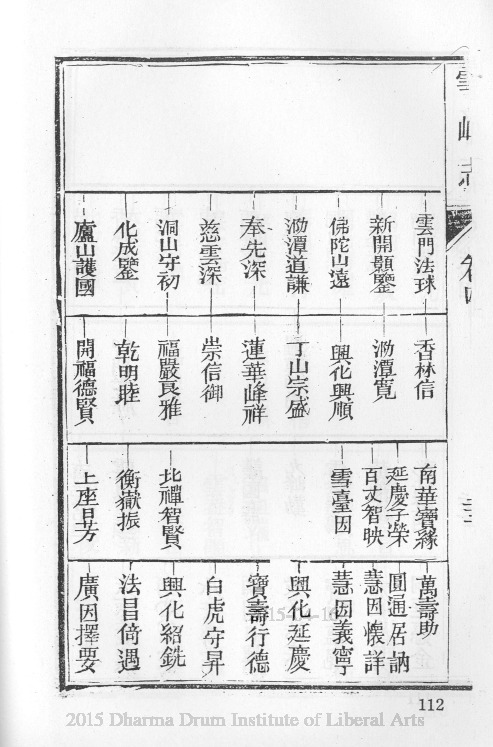 雪峰志
卷四
雲門法球
新開顥鑒
佛陀山遠
泐潭道謙
奉先深
慈雲深
洞山守初
化成鑒
廬山護國
香林信
泐潭寬
興化興順
丁山宗盛
蓮華峰祥
崇信御
福嚴良雅
乾明睦
開福德賢
南華寶緣
延慶子榮
百丈智映
雪臺因
北禪智賢
衡嶽振
上座日芳
萬壽助
圓通居訥
慧因懷詳
慧因義寧
興化延慶
寶壽行德
白虎守昇
興化紹銑
法昌倚遇
廣因擇要
112
2015 Dharma Drum Institute of Liberal Arts